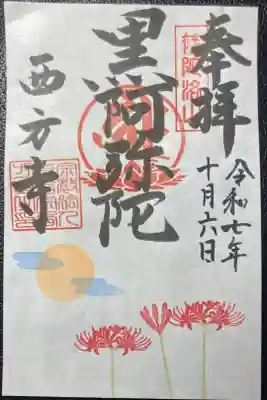 奉拝
令和七年
十月六日
里阿弥陀
西方寺